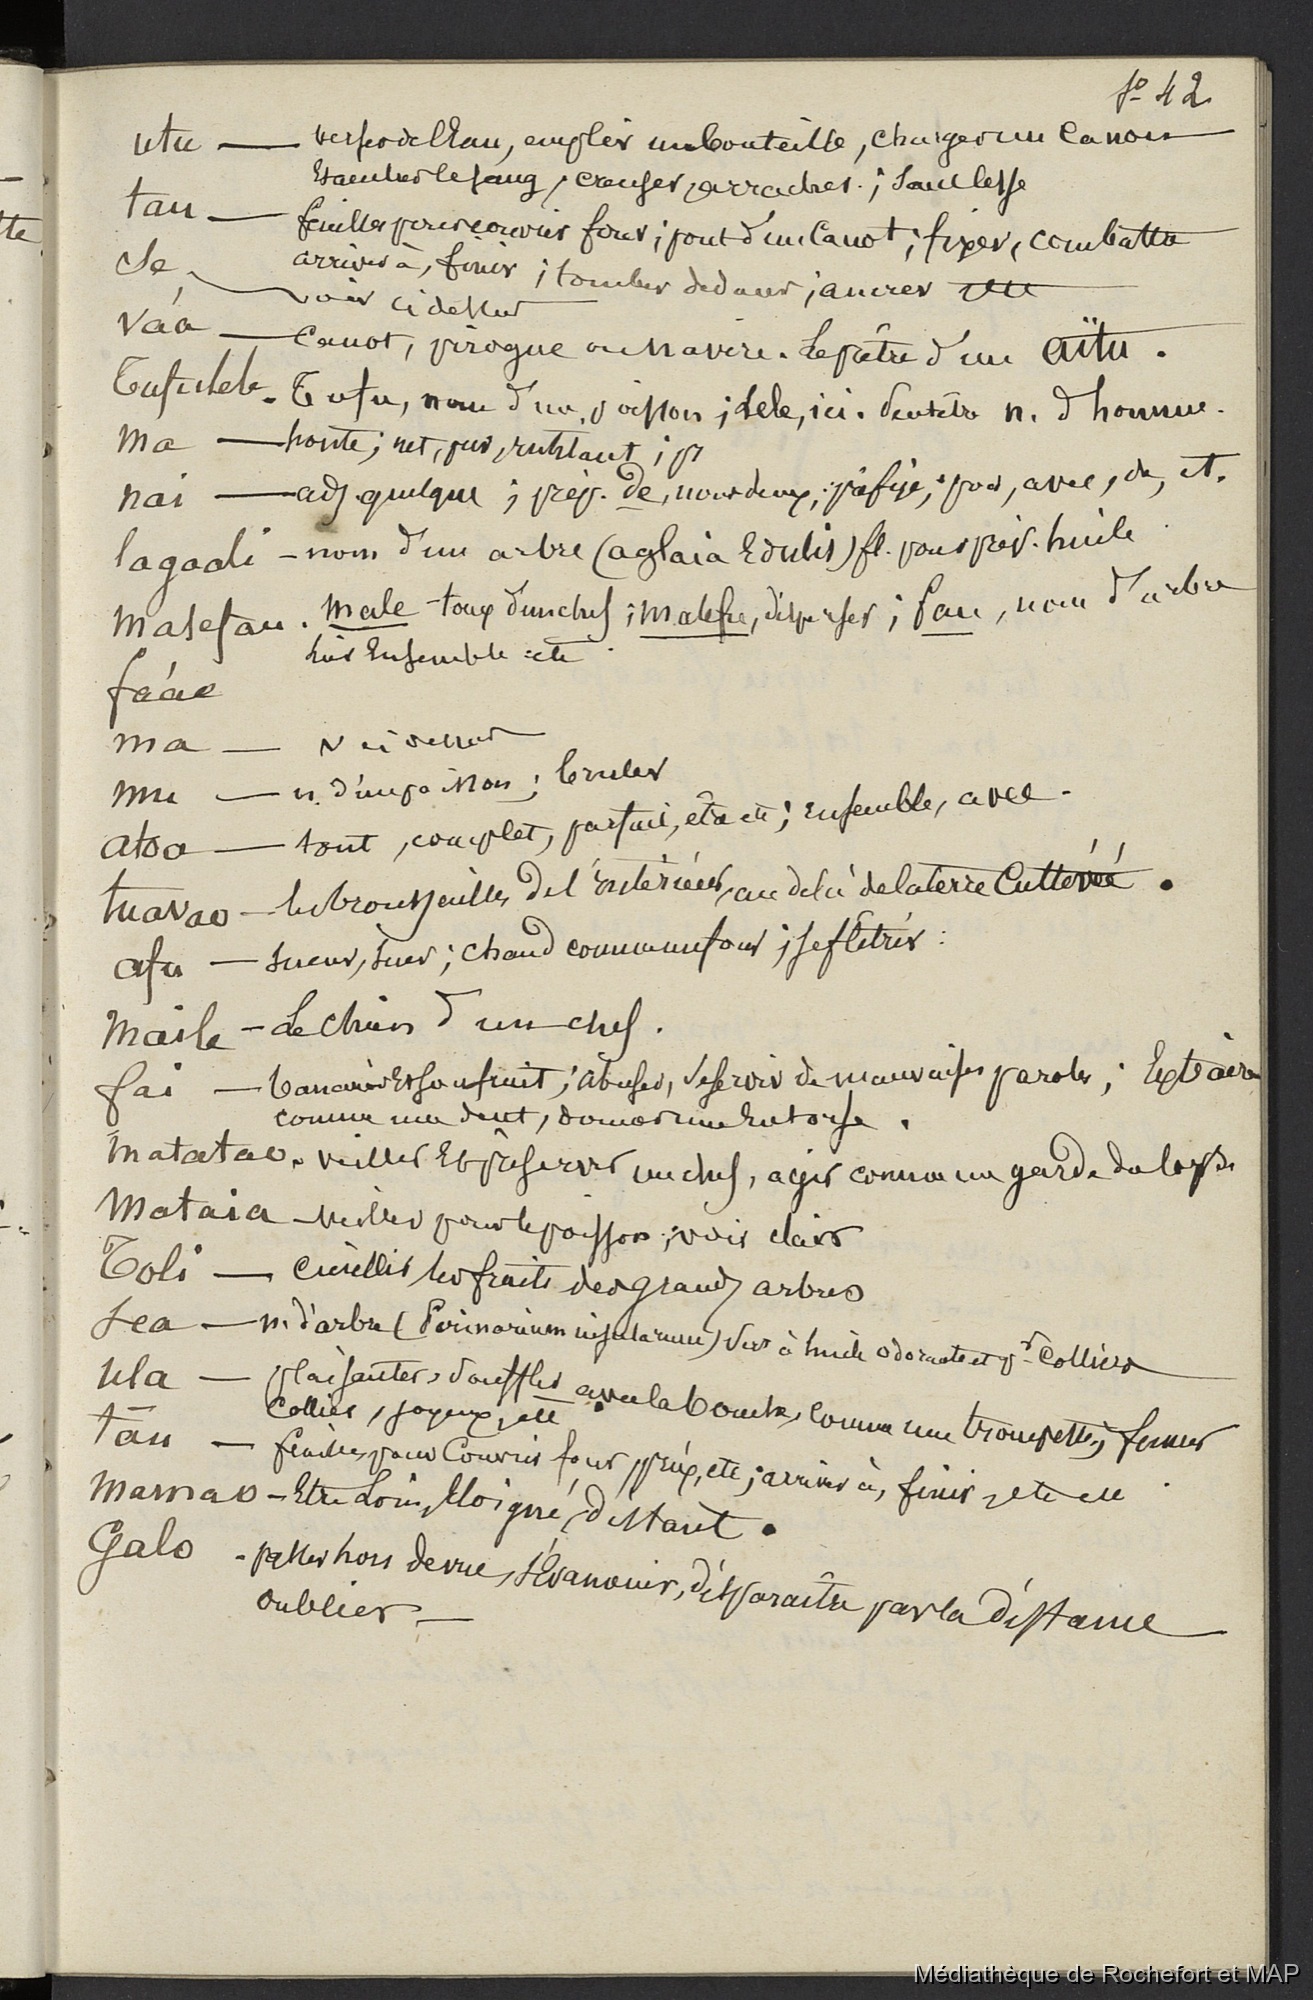 fo 42
utu — verser de l'Eau, emplir une bouteille, charger un canon
Etancher le sang, creuser, arracher ; Saucisse
tau — feuilles pour couvrir four ; pont d'un Canot ; fixer, combattre
arriver à, finir ; tomber dedans ; ancrer etc
se, voir ci dessus
váa — canot, pirogue ou navire. Le prêtre d'un aïtu.
Tufulele. Tufu, nom d'un poisson ; lele, ici. n. d'homme.
ma — honte ; net, pur, rutilant ;
nai — adj. quelque ; prép. de, nous deux, préfixe, pour, avec, de, et.
lagaali — nom d'un arbre (aglaia Edulis) fl. pour prép. huile
Malefau. male toux d'un chef ; malefe, disperser ; fau, nom d'arbre
lier Ensemble etc
fáae
ma — v ci dessus
mu — n. d'un poisson ; bruler
atoa — tout, complet, parfait, etc ; ensemble, avec.
tuavao — les broussailles de l'intérieur, au delà de la terre Cultivée.
afu — sueur, suer ; chaud comme un four ; se flétrir :
Maile — Le chien d'un chef.
fai — bananier Et son fruit ; abuser, se servir de mauvaises paroles ; Extraire
comme une dent, donner une Entorse.
Matatao. veiller Et préserver un chef, agir comme un garde du corps
Mataia — veiller pour le poisson ; voir clair
Toli — cueillir les fruits des grands arbres
sea — n. d'arbre (Parinarium insularum) sert à huile odorante et pr Colliers
ula — plaisanter, souffler avec la bouche, comme une trompette ; fumer
Collier, joyeux, etc
tau — feuilles pour Couvrir four, prix, etc ; arriver à, finir, etc etc
Mamao — Etre Loin, Eloigné, distant.
Galo — passer hors de vue, s'Evanouir, disparaître par la distance
oublier —
Médiathèque de Rochefort et MAP